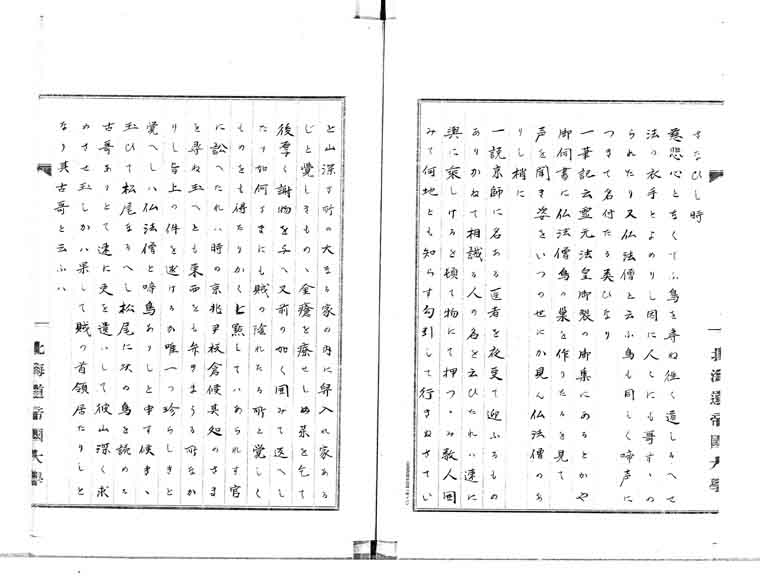 さなひし時
慈悲心となくてふ鳥を尋ね往く道しるへせ
法の衣手とよのりし因に人々にも哥すゝの
られたり又仏法僧と云ふ鳥も同しく啼声に
つきて名付たる類ひなり
一筆記云霊元法皇御製の御集にあるとかや
御何書に仏法僧鳥の巣を作りたるを見て
声を聞き姿をいつの世にか見ん仏法僧のあ
りし梢に
一説京師に名ある医者を夜更て迎ふるもの
ありかねて相識る人の名を云ひたれハ速に
輿に乗しけると頓て物にて押つゝみ数人囲
みて何地とも知らす勾引して行きぬさてい
北海道帝国大学
と山深き所の大なる家の内に舁入れ家ある
しと覚しきものゝ金瘡を療せしめ薬を乞て
後厚く謝物を予へ又前の如く囲みて送へし
たり如何さまにも賊の隠れたる所と覚しく
ものをも得たりかく黙してハあられす官
に訟へたれハ時の京兆尹板倉侯其処のさま
を尋ね玉へとも東西とも弁まうる所なか
りし旨上の件を述けるか唯一つ珍らしきと
覚へしハ仏法僧と啼鳥ありしと申す候きゝ
玉ひて松尾なるへし松尾に次の鳥を詠める
古哥ありとて速に吏を遣ハして彼山深く求
めさせ玉しかハ果して賊の首領居たりしと
なり其古哥と云ふハ
北海道帝国大学